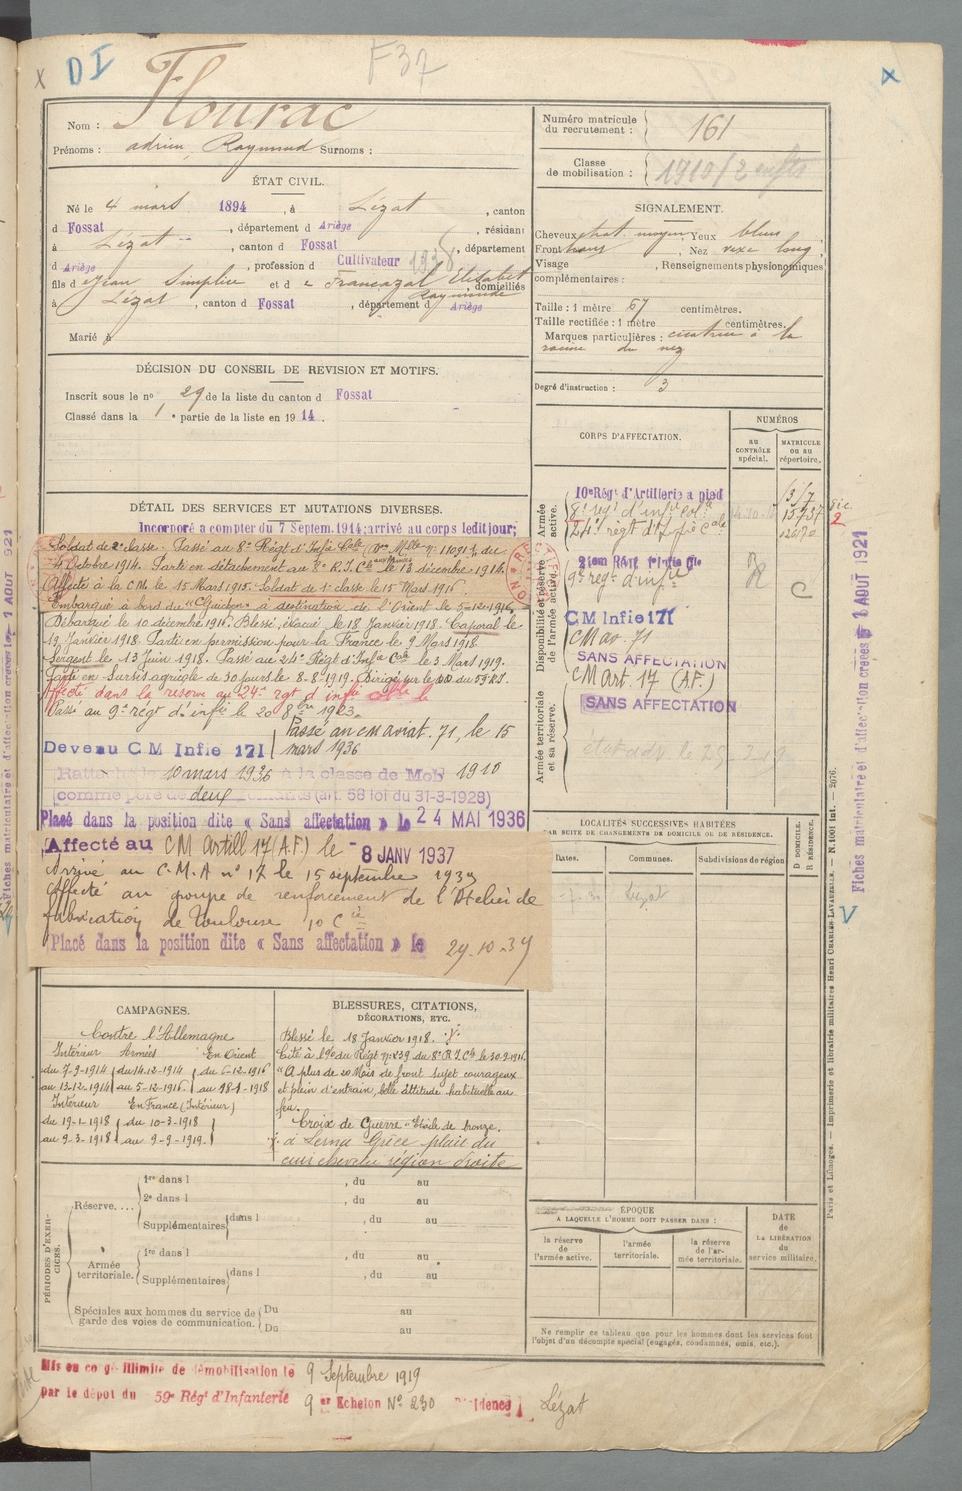 X DI F37 X
Nom : Flourac
Prénoms : adrien, Raymond Surnoms :
ÉTAT CIVIL.
Né le 4 mars 1894, à Lézat, canton
d Fossat, département d Ariège, résidant
à Lézat, canton d Fossat, département
d Ariège, profession d Cultivateur 1938
fils d Jean Simplice et d Francazal Elisabet Raymunde, domiciliés
à Lézat, canton d Fossat, département d Ariège
Marié à
DÉCISION DU CONSEIL DE REVISION ET MOTIFS.
Inscrit sous le nº 29 de la liste du canton d Fossat
Classé dans la 1 e partie de la liste en 1914.
DÉTAIL DES SERVICES ET MUTATIONS DIVERSES.
Incorporé a compter du 7 Septem. 1914; arrivé au corps ledit jour;
Soldat de 2e classe. Passé au 8e Régt d'Infie Cle (Nº Mlle nº 11091), du
4 Octobre 1914. Parti en détachement au 8e R.I.Cle aux armées le 13 décembre 1914.
Affecté à la C.M. le 15 Mars 1915. Soldat de 1e classe le 15 Mars 1916
Embarqué à bord du "Guichen" à destination de l'Orient le 5-12-1916.
Débarqué le 10 décembre 1916. Blessé, évacué le 18 Janvier 1918. Caporal le
19 Janvier 1918. Parti en permission pour la France le 9 Mars 1918.
Sergent le 13 Juin 1918. Passé au 24e Régt d'Infie Cole le 3 Mars 1919.
Parti en Sursis agricole de 30 jours le 8-8-1919. Dirigé sur le DD du 59 R.I.
Affecté dans la reserve au 24e rgt d infie cole le
Passé au 9e régt d'infie le 20 8bre 1923.
Passé au cm aviat. 71, le 15
Devenu CM Infie 171 mars 1936
Rattaché le 10 mars 1936 à la classe de Mob 1910
comme père de deux enfants (art. 58 loi du 31-3-1928)
Placé dans la position dite « Sans affectation » le 24 MAI 1936
Affecté au CM Artill 17 (A.F) le 8 JANV 1937
Arrivé au C.M.A nº 17 le 15 septembre 1939
Affecté au groupe de renforcement de l'Atelier de
fabrication de Toulouse 10 Cie
Placé dans la position dite « Sans affectation » le 29-10-39
CAMPAGNES.
Contre l'Allemagne
Intérieur Armées En Orient
du 7-9-1914 du 14-12-1914 du 6-12-1916
au 13-12-1914 au 5-12-1916. au 18-1-1918
Intérieur En France (Intérieur)
du 19-1-1918 du 10-3-1918
au 9-3-1918 au 9-9-1919.
BLESSURES, CITATIONS,
DÉCORATIONS, ETC.
Blessé le 18 Janvier 1918.
Cité à l'Odre du Régt nº 239 du 8e R.I.Cle le 30-9-1916
"A plus de 20 Mois de front sujet courageux
et plein d'entrain, belle attitude habituelle au
feu.
Croix de Guerre "Etoile de bronze.
à Lerna Grèce plaie du
cuir chevelu région droite
PÉRIODES D'EXERCICES.
Réserve....
1re dans l , du au
2e dans l , du au
Supplémentaires dans l , du au
Armée territoriale.
1re dans l , du au
Supplémentaires dans l , du au
Spéciales aux hommes du service de
garde des voies de communication.
Du au
Du au
Mis en congé illimité de démobilisation le 9 Septembre 1919
par le dépôt du 59e Régt d'Infanterie 9 er Echelon Nº 230 Résidence Lézat
Numéro matricule
du recrutement : 161
Classe
de mobilisation : 1910/2 enfts
SIGNALEMENT.
Cheveux chat. moyen, Yeux bleus,
Front, Nez vexe long,
Visage, Renseignements physionomiques
complémentaires :
Taille : 1 mètre 67 centimètres.
Taille rectifiée : 1 mètre centimètres.
Marques particulières : cicatrice à la
racine du nez
Degré d'instruction : 3
CORPS D'AFFECTATION.
NUMÉROS
au CONTRÔLE spécial.
MATRICULE ou au répertoire.
Armée active.
10e Régt d'Artillerie a pied
8e regt d'infie col
24e regt d'Infie Cale
Disponibilité et réserve de l'armée active.
9e regt d'infie
CM Infie 171
CM av. 71
SANS AFFECTATION
C M Art. 17 (A.F.)
Armée territoriale et sa réserve.
SANS AFFECTATION
LOCALITÉS SUCCESSIVES HABITÉES
PAR SUITE DE CHANGEMENTS DE DOMICILE OU DE RÉSIDENCE.
Dates. Communes. Subdivisions de région
D DOMICILE.
R RÉSIDENCE.
Lézat
ÉPOQUE
A LAQUELLE L'HOMME DOIT PASSER DANS :
la réserve de l'armée active.
l'armée territoriale.
la réserve de l'armée territoriale.
DATE
de
LA LIBÉRATION
du
service militaire.
Ne remplir ce tableau que pour les hommes dont les services font
l'objet d'un décompte spécial (engagés, condamnés, omis, etc.).
Fiches matriculaire et d'affectation créées le 1 AOUT 1921
Paris et Limoges. — Imprimerie et librairie militaires Henri CHARLES-LAVAUZELLE. — N. 1001 Int. — 2076.